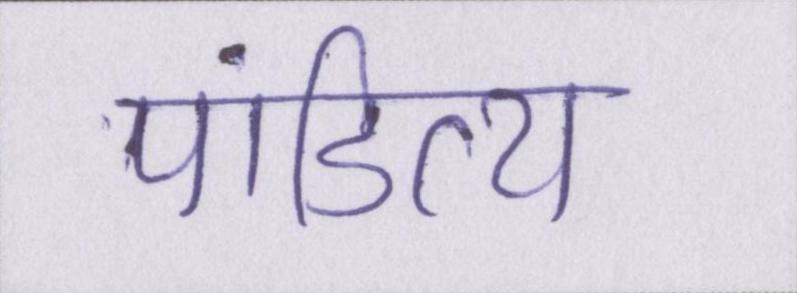 पांडित्य